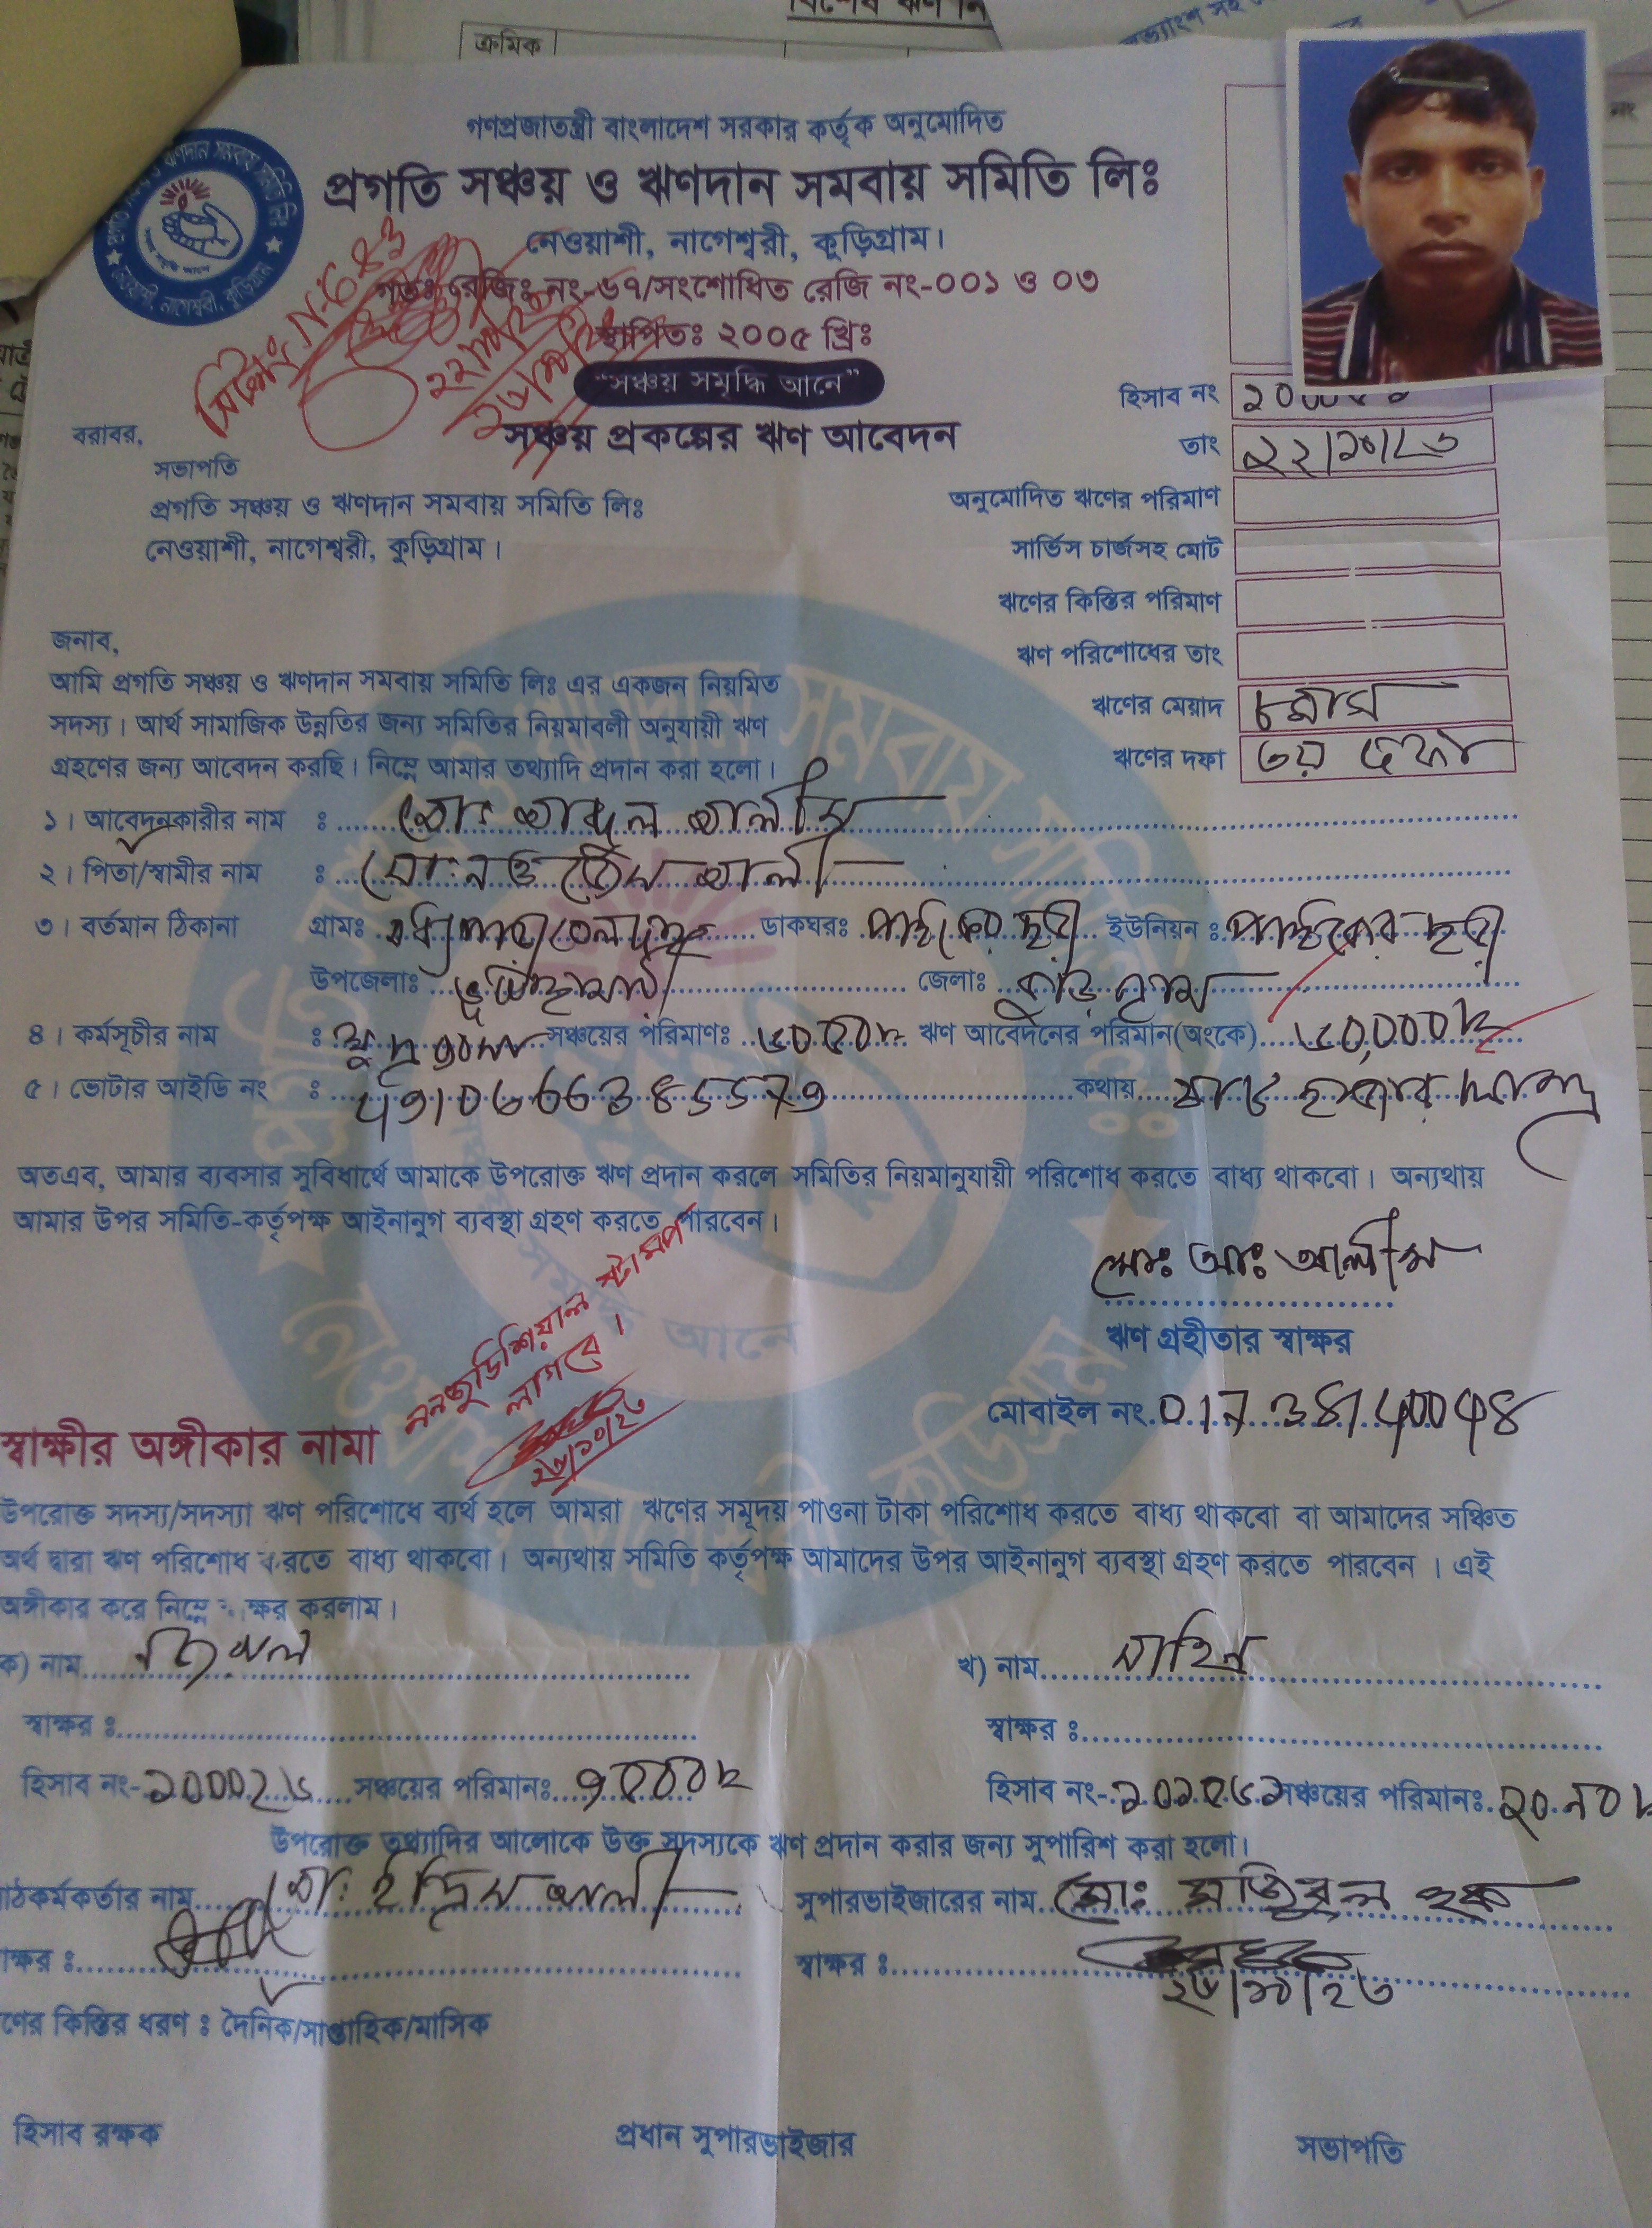 ক্রমিক
গণপ্রজাতন্ত্রী বাংলাদেশ সরকার কর্তৃক অনুমোদিত
প্রগতি সঞ্চয় ও ঋণদান সমবায় সমিতি লিঃ
নেওয়াশী, নাগেশ্বরী, কুড়িগ্রাম।
গভঃ রেজিঃ নং-৬৭/সংশোধিত রেজি নং-০০১ ও ০৩
স্থাপিতঃ ২০০৫ খ্রিঃ
"সঞ্চয় সমৃদ্ধি আনে"
সঞ্চয় প্রকল্পের ঋণ আবেদন
হিসাব নং
তাং ২২/১০/২৩
অনুমোদিত ঋণের পরিমাণ
সার্ভিস চার্জসহ মোট
ঋণের কিস্তির পরিমাণ
ঋণ পরিশোধের তাং
ঋণের মেয়াদ ৮ মাস
ঋণের দফা ৩য় দফা
বরাবর,
সভাপতি
প্রগতি সঞ্চয় ও ঋণদান সমবায় সমিতি লিঃ
নেওয়াশী, নাগেশ্বরী, কুড়িগ্রাম।
জনাব,
আমি প্রগতি সঞ্চয় ও ঋণদান সমবায় সমিতি লিঃ এর একজন নিয়মিত
সদস্য। আর্থ সামাজিক উন্নতির জন্য সমিতির নিয়মাবলী অনুযায়ী ঋণ
গ্রহণের জন্য আবেদন করছি। নিম্নে আমার তথ্যাদি প্রদান করা হলো।
১। আবেদনকারীর নাম : মোঃ আব্দুল আলীম
২। পিতা/স্বামীর নাম : মোঃ নওশের আলী
৩। বর্তমান ঠিকানা গ্রামঃ ডাকঘরঃ পাইকেরছড়া ইউনিয়ন : পাইকেরছড়া
উপজেলাঃ ভূরুঙ্গামারী জেলাঃ কুড়িগ্রাম
৪। কর্মসূচীর নাম : ক্ষুদ্র ঋণ সঞ্চয়ের পরিমাণঃ ঋণ আবেদনের পরিমান(অংকে) ৬০,০০০/=
৫। ভোটার আইডি নং : কথায় ষাট হাজার মাত্র
অতএব, আমার ব্যবসার সুবিধার্থে আমাকে উপরোক্ত ঋণ প্রদান করলে সমিতির নিয়মানুযায়ী পরিশোধ করতে বাধ্য থাকবো। অন্যথায়
আমার উপর সমিতি-কর্তৃপক্ষ আইনানুগ ব্যবস্থা গ্রহণ করতে পারবেন।
মোঃ আঃ আলীম
ঋণ গ্রহীতার স্বাক্ষর
মোবাইল নং
ননজুডিশিয়াল ষ্টাম্প
লাগবে।
২৬/১০/২৩
স্বাক্ষীর অঙ্গীকার নামা
উপরোক্ত সদস্য/সদস্যা ঋণ পরিশোধে ব্যর্থ হলে আমরা ঋণের সমূদয় পাওনা টাকা পরিশোধ করতে বাধ্য থাকবো বা আমাদের সঞ্চিত
অর্থ দ্বারা ঋণ পরিশোধ করতে বাধ্য থাকবো। অন্যথায় সমিতি কর্তৃপক্ষ আমাদের উপর আইনানুগ ব্যবস্থা গ্রহণ করতে পারবেন। এই
অঙ্গীকার করে নিম্নে ক্ষর করলাম।
ক) নাম
খ) নাম
স্বাক্ষর :
স্বাক্ষর :
হিসাব নং- সঞ্চয়ের পরিমানঃ
হিসাব নং- সঞ্চয়ের পরিমানঃ
উপরোক্ত তথ্যাদির আলোকে উক্ত সদস্যকে ঋণ প্রদান করার জন্য সুপারিশ করা হলো।
ঠকর্মকর্তার নাম মোঃ ইদ্রিস আলী
সুপারভাইজারের নাম মোঃ মতিবুল হক
ক্ষর :
স্বাক্ষর :
২৬/১০/২৩
ণের কিস্তির ধরণ : দৈনিক/সাপ্তাহিক/মাসিক
হিসাব রক্ষক
প্রধান সুপারভাইজার
সভাপতি